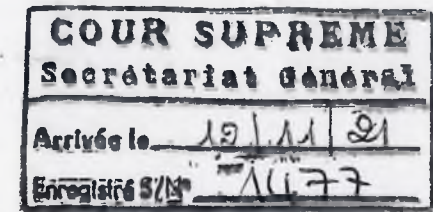 COUR SUPREME
Secrétariat Général
Arrivée le 19/11/21
Enregistré S/N° 1477